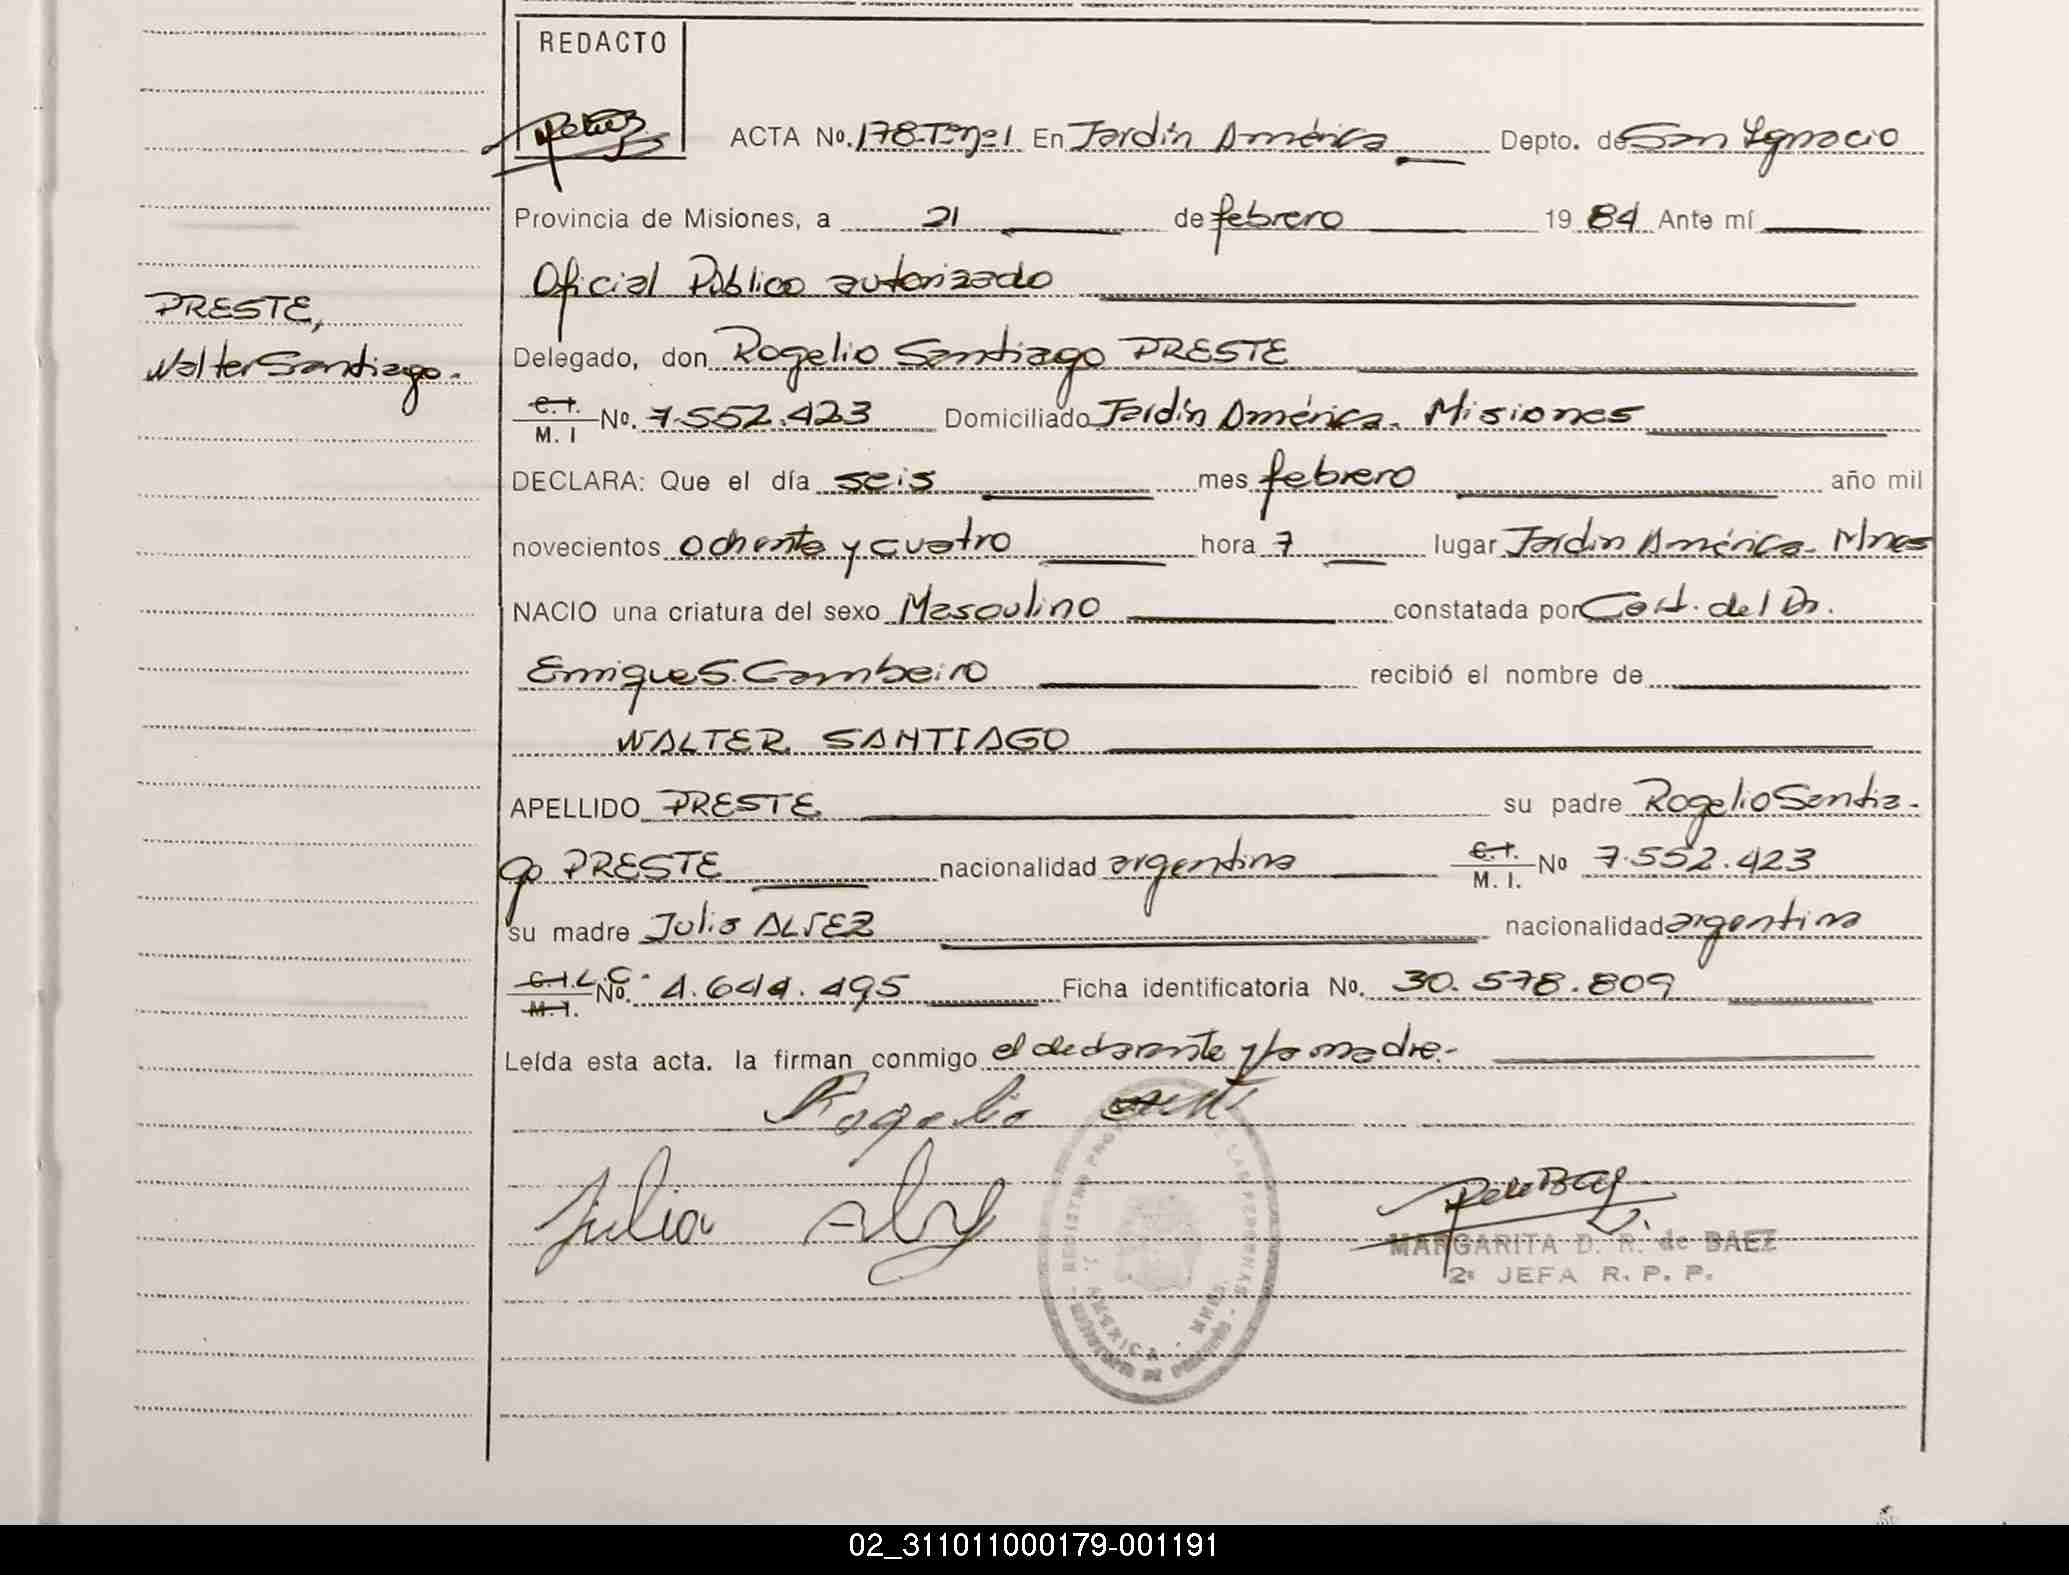 REDACTO
ACTA No. 178-Tº nº 1 En Jardín América Depto. de San Ignacio
Provincia de Misiones, a 21 de febrero 19 84 Ante mí
Oficial Público autorizado
PRESTE,
Walter Santiago.
Delegado, don Rogelio Santiago PRESTE
C. I. M. I No. 7.552.423 Domiciliado Jardín América. Misiones
DECLARA: Que el día seis mes febrero año mil
novecientos ochenta y cuatro hora 7 lugar Jardín América. Mnes
NACIO una criatura del sexo Masculino constatada por Cert. del Dr.
Enrique S. Cambeiro recibió el nombre de
WALTER SANTIAGO
APELLIDO PRESTE su padre Rogelio Santia-
go PRESTE nacionalidad argentina C. I. M. I. No 7.552.423
su madre Julia ALVEZ nacionalidad argentina
C. I. L. C. M. I. No. 4.644.495 Ficha identificatoria No. 30.578.809
Leída esta acta. la firman conmigo el declarante y la madre.-
Rogelio
Julia Alvez
MARGARITA D. R. de BAEZ
2ª JEFA R. P. P.
REGISTRO PROV. DE LAS PERSONAS
J. AMERICA - MNES.
02_311011000179-001191